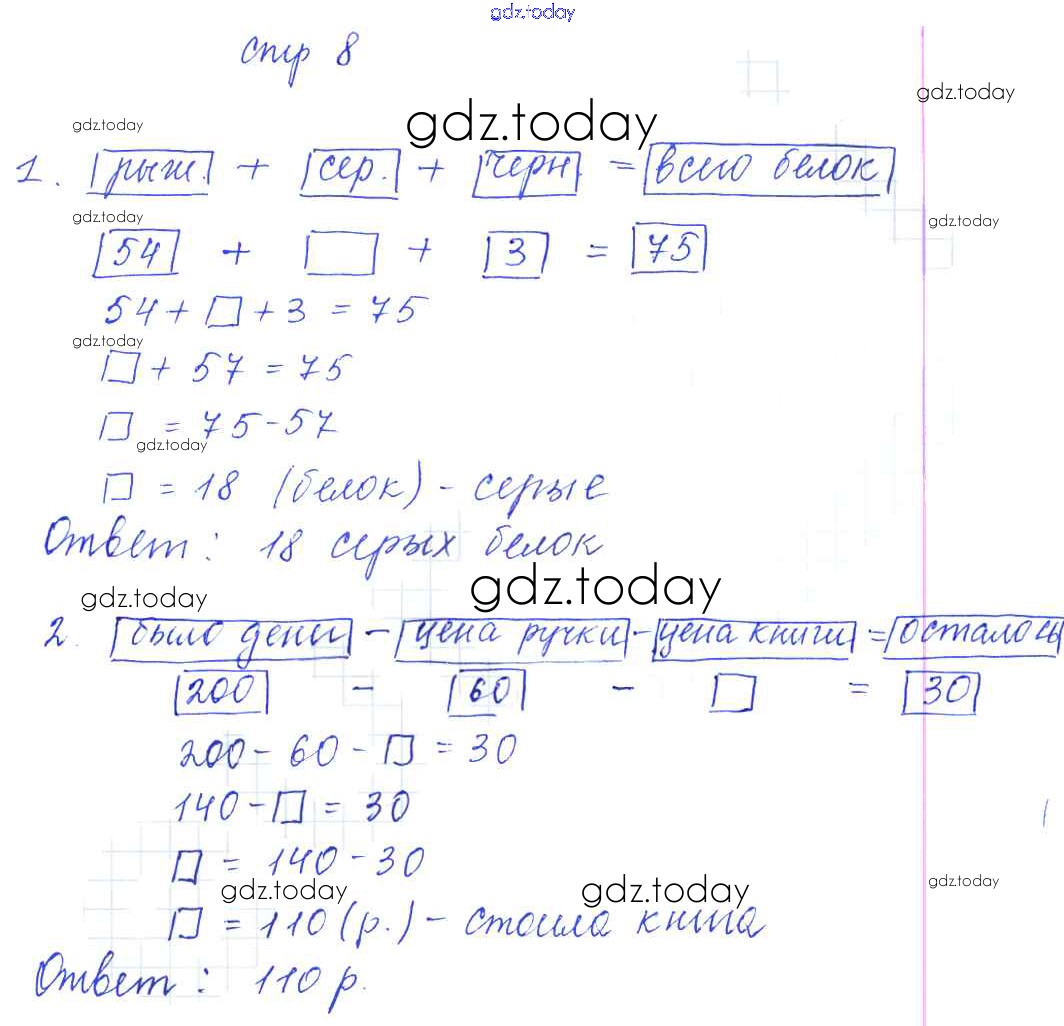 gdz.today
стр 8
gdz.today
gdz.today
gdz.today
1. рыж. + сер. + черн. = всего белок
gdz.today
gdz.today
54 + □ + 3 = 75
54 + □ + 3 = 75
gdz.today
□ + 57 = 75
□ = 75 - 57
gdz.today
□ = 18 (белок) - серые
Ответ: 18 серых белок
gdz.today
gdz.today
2. было денег - цена ручки - цена книги = осталось
200 - 60 - □ = 30
200 - 60 - □ = 30
140 - □ = 30
□ = 140 - 30
gdz.today
gdz.today
gdz.today
□ = 110 (р.) - стоила книга
Ответ: 110 р.